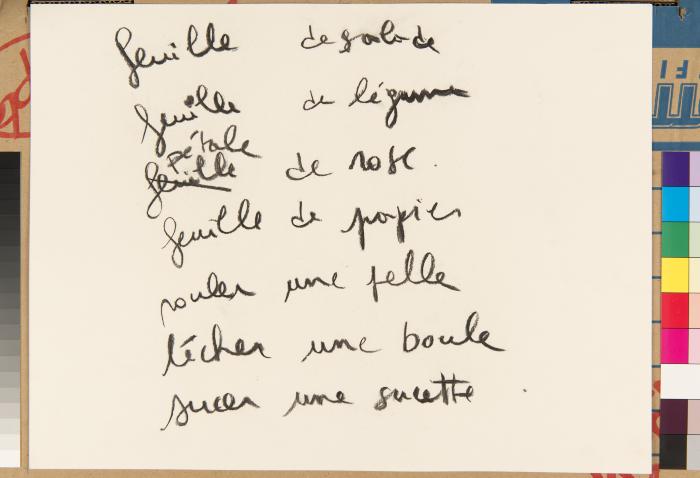 feuille de salade
feuille de légume
pétale
feuille de rose.
feuille de papier
rouler une pelle
lécher une boule
sucer une sucette.